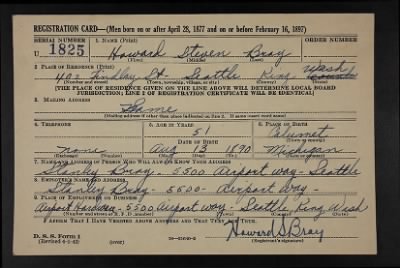 REGISTRATION CARD—(Men born on or after April 28, 1877 and on or before February 16, 1897)
SERIAL NUMBER 1. NAME (Print) ORDER NUMBER
U 1825 Howard Steven Bray
(First) (Middle) (Last)
2. PLACE OF RESIDENCE (Print)
402 Findlay St - Seattle King Wash
(Number and street) (Town, township, village, or city) (County) (State)
[THE PLACE OF RESIDENCE GIVEN ON THE LINE ABOVE WILL DETERMINE LOCAL BOARD
JURISDICTION; LINE 2 OF REGISTRATION CERTIFICATE WILL BE IDENTICAL]
3. MAILING ADDRESS
Same
[Mailing address if other than place indicated on line 2. If same insert word same]
4. TELEPHONE 5. AGE IN YEARS 6. PLACE OF BIRTH
51 Calumet
DATE OF BIRTH (Town or county)
None Aug 13 1890 Michigan
(Exchange) (Number) (Mo.) (Day) (Yr.) (State or country)
7. NAME AND ADDRESS OF PERSON WHO WILL ALWAYS KNOW YOUR ADDRESS
Stanley Bray - 5500 Airport way - Seattle
8. EMPLOYER'S NAME AND ADDRESS
Stanley Bray - 5500 - Airport Way -
9. PLACE OF EMPLOYMENT OR BUSINESS
Airport Hardware - 5500 Airport way - Seattle King Wash
(Number and street or R. F. D. number) (Town) (County) (State)
I AFFIRM THAT I HAVE VERIFIED ABOVE ANSWERS AND THAT THEY ARE TRUE.
D. S. S. Form 1
(Revised 4-1-42) (over) Howard S Bray
(Registrant's signature)